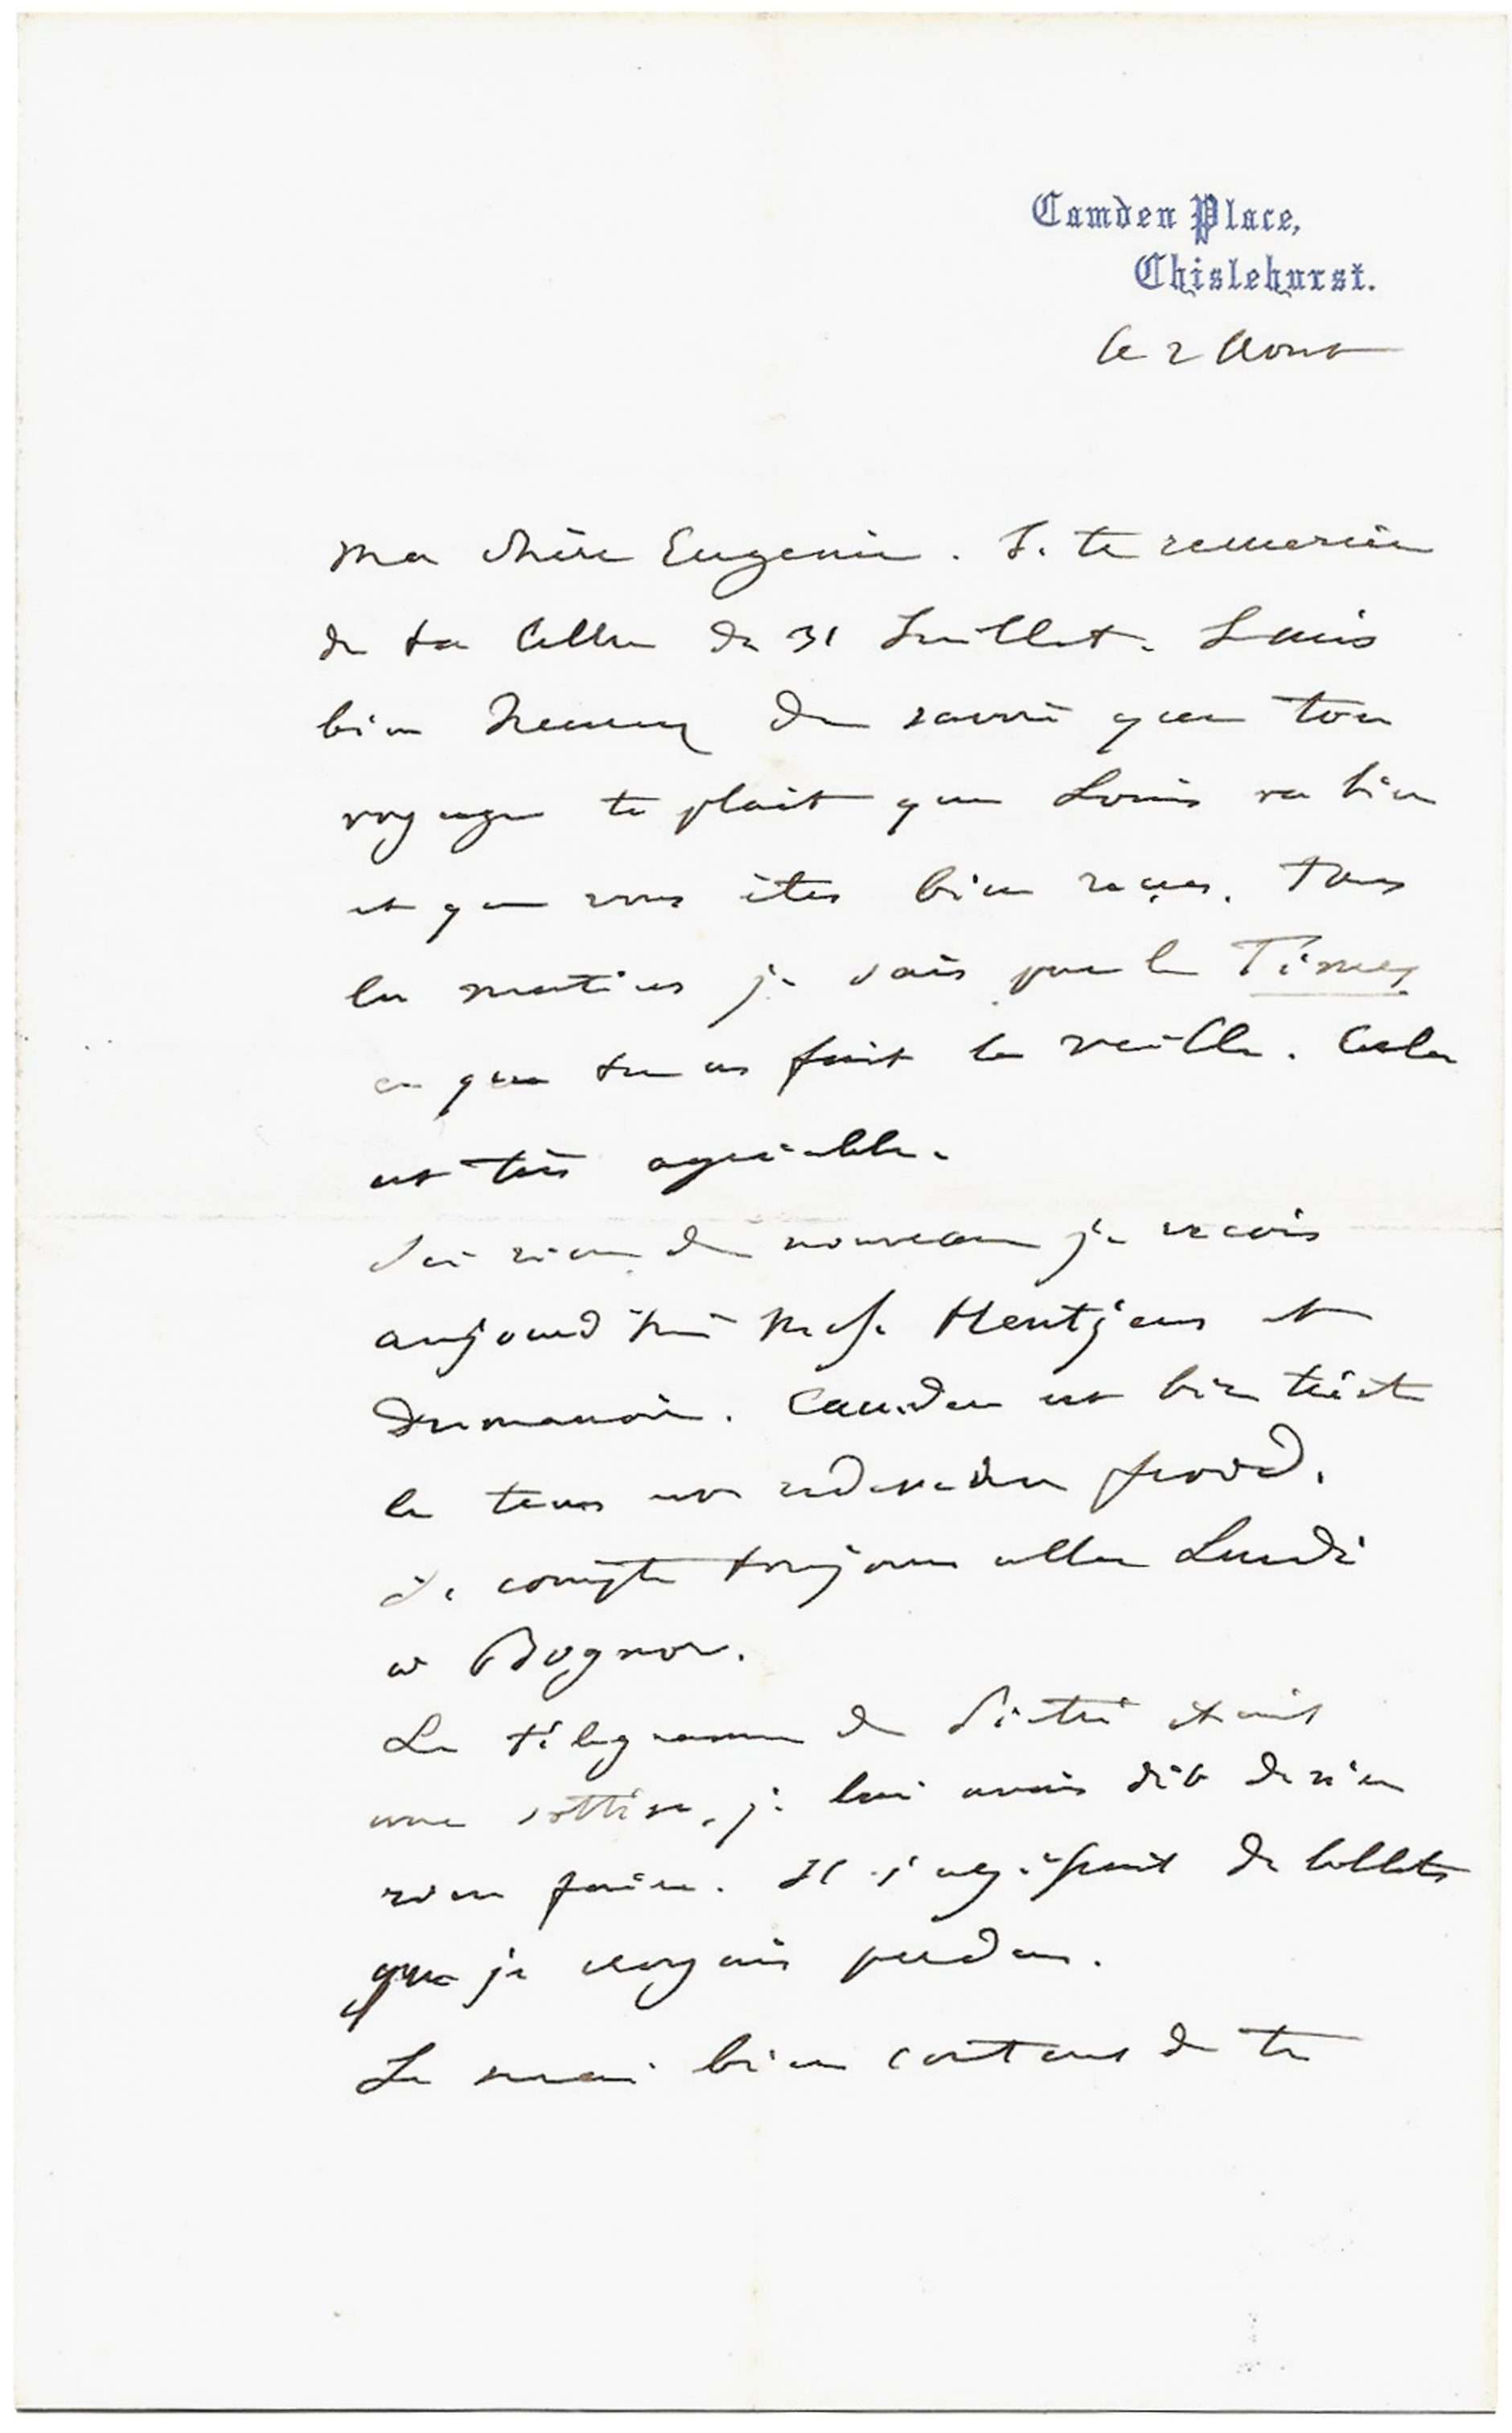 Camden Place,
Chislehurst.
le 2 Aout
Ma chère Eugenie. Je te remercie
de ta lettre du 31 Juillet. Je suis
bien heureux de savoir que ton
voyage te plait que Louis va bien
et que vous êtes bien reçus. Tous
les matins je sais par le Times
ce que tu as fait la veille. Cela
est très agréable.
Ici rien de nouveau je recois
aujourd'hui Mrs. Hentjens et
Dumanoir. Camden est bien triste
le tems est redevenu froid.
Je compte toujours aller Lundi
a Bognor.
Le télegramme de Pietri etait
une sottise, je lui avais dit de n'en
rien faire. Il s'agissait de billets
que je croyais perdus.
Je serai bien content de te